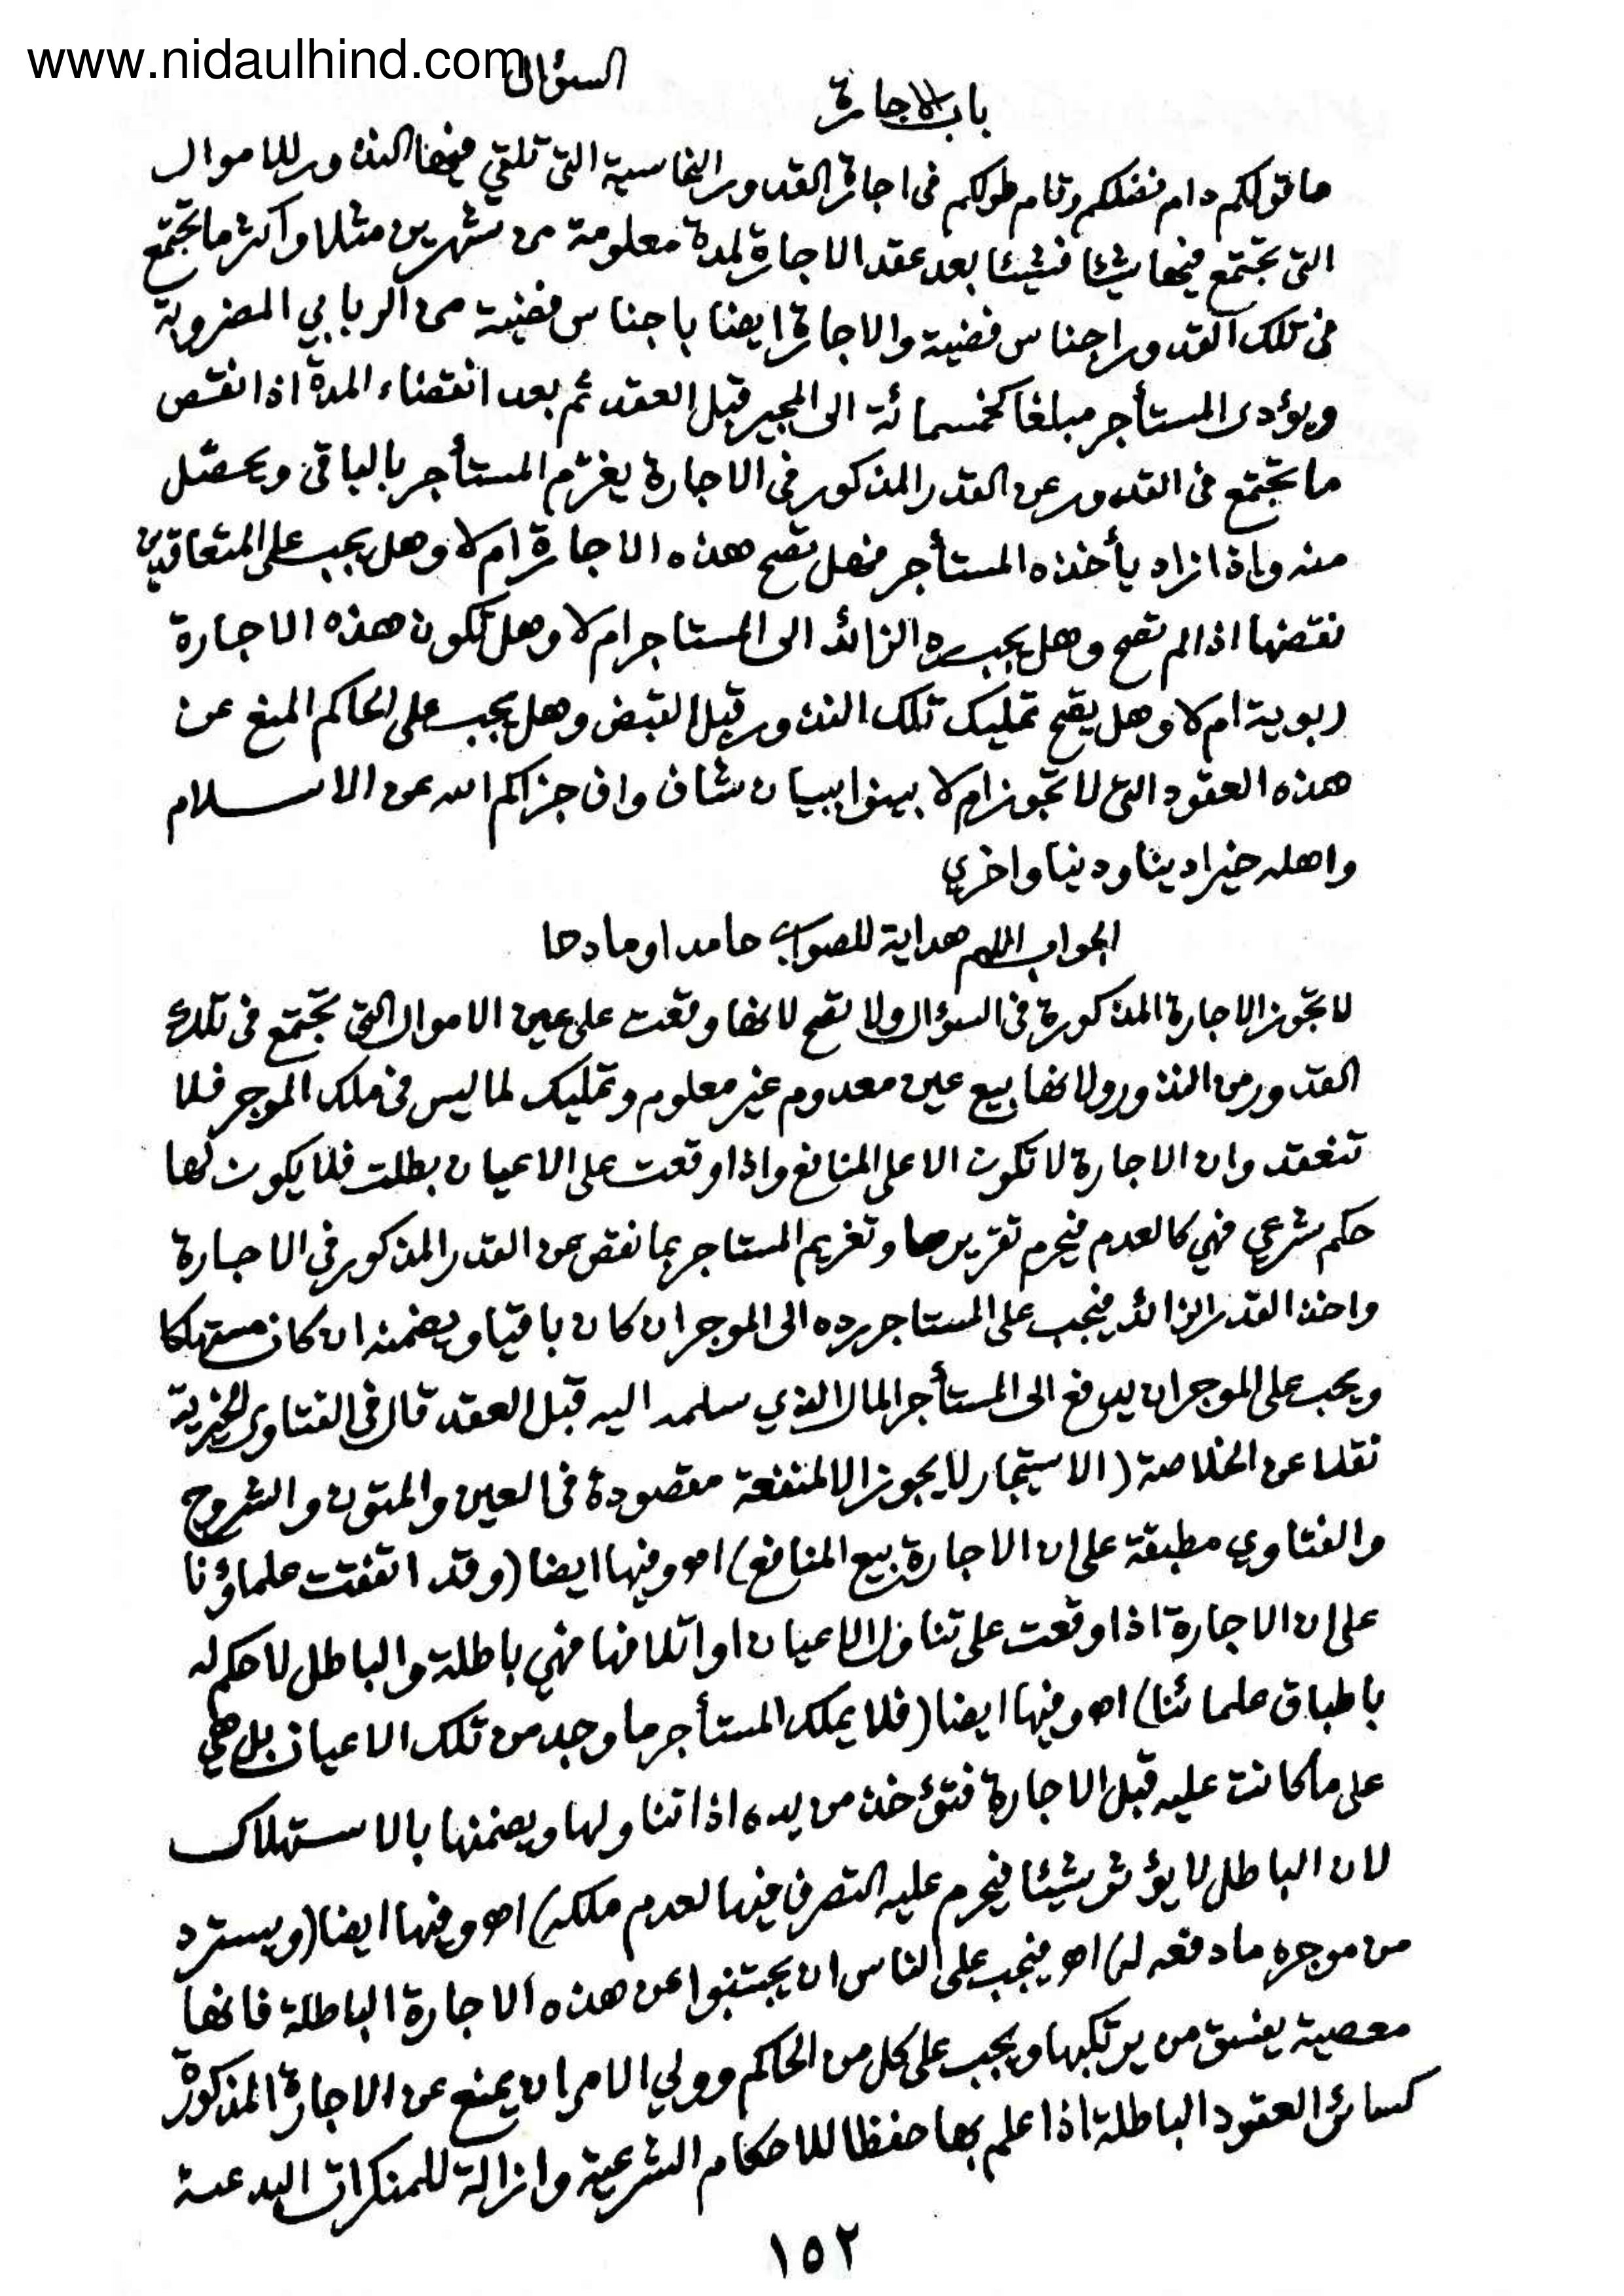 www.nidaulhind.com
السؤال
باب الاجارة
ما قولكم دام فضلكم وقام طولكم فى اجارة القدور النحاسية التى تلقي فيها النذور للاموال
التى تجتمع فيها شيئا فشيئا بعد عقد الاجارة لمدة معلومة من شهرين مثلا واكثر ما تجتمع
فى تلك القدور اجناس فضية والاجارة ايضا باجناس فضية من الربابي المضروبة
ويؤدى المستأجر مبلغا كخمسمائة الى المجير قبل العقد ثم بعد انقضاء المدة اذا نقص
ما تجتمع فى القدور عن القدر المذكور فى الاجارة يغرّم المستأجر بالباقى ويحصّل
منه واذا زاد يأخذه المستأجر فهل تصح هذه الاجارة ام لا وهل يجب على المتعاقدين
نقضها اذا لم تصح وهل يجب رد الزائد الى المستاجر ام لا وهل تكون هذه الاجارة
ربوية ام لا وهل يصح تمليك تلك النذور قبل القبض وهل يجب على الحاكم المنع عن
هذه العقود التى لا تجوز ام لا بينوا ببيان شاف واف جزاكم الله عن الاسلام
واهله خيرا دينا ودنيا واخري
الجواب اللهم هداية للصواب حامدا ومادحا
لا تجوز الاجارة المذكورة فى السؤال ولا تصح لانها وقعت على عين الاموال التى تجتمع فى تلك
القدور من النذور ولانها بيع عين معدوم غير معلوم وتمليك لما ليس فى ملك الموجر فلا
تنعقد وان الاجارة لا تكون الا على المنافع واذا وقعت على الاعيان بطلت فلا يكون لها
حكم شرعي فهي كالعدم فيحرم تقريرها وتغريم المستاجر بما نقص عن القدر المذكور فى الاجارة
واخذ القدر الزائد فيجب على المستاجر رده الى الموجر ان كان باقيا ويضمنه ان كان مستهلكا
ويجب على الموجر ان يدفع الى المستأجر المال الذي سلمه اليه قبل العقد قال فى الفتاوى الخيرية
نقلا عن الخلاصة (الاستيجار لا يجوز الا لمنفعة مقصودة فى العين والمتون والشروح
والفتاوي مطبقة على ان الاجارة بيع المنافع) اھ وفيها ايضا (وقد اتفقت علماؤنا
على ان الاجارة اذا وقعت على تناول الاعيان او اتلافها فهي باطلة والباطل لا حكم له
باطباق علمائنا) اھ وفيها ايضا (فلا يملك المستأجر ما وجد من تلك الاعيان بل هي
على ما كانت عليه قبل الاجارة فتؤخذ من يده اذا تناولها ويضمنها بالاستهلاك
لان الباطل لا يؤثر شيئا فيحرم عليه التصرف فيها لعدم ملكه) اھ وفيها ايضا (ويسترد
من موجره ما دفعه له) اھ فيجب على الناس ان يجتنبوا عن هذه الاجارة الباطلة فانها
معصية يفسق من يرتكبها ويجب على كل من الحاكم وولي الامر ان يمنع عن الاجارة المذكورة
كسائر العقود الباطلة اذا علم بها حفظا للاحكام الشرعية وازالة للمنكرات البدعية
١٥٢